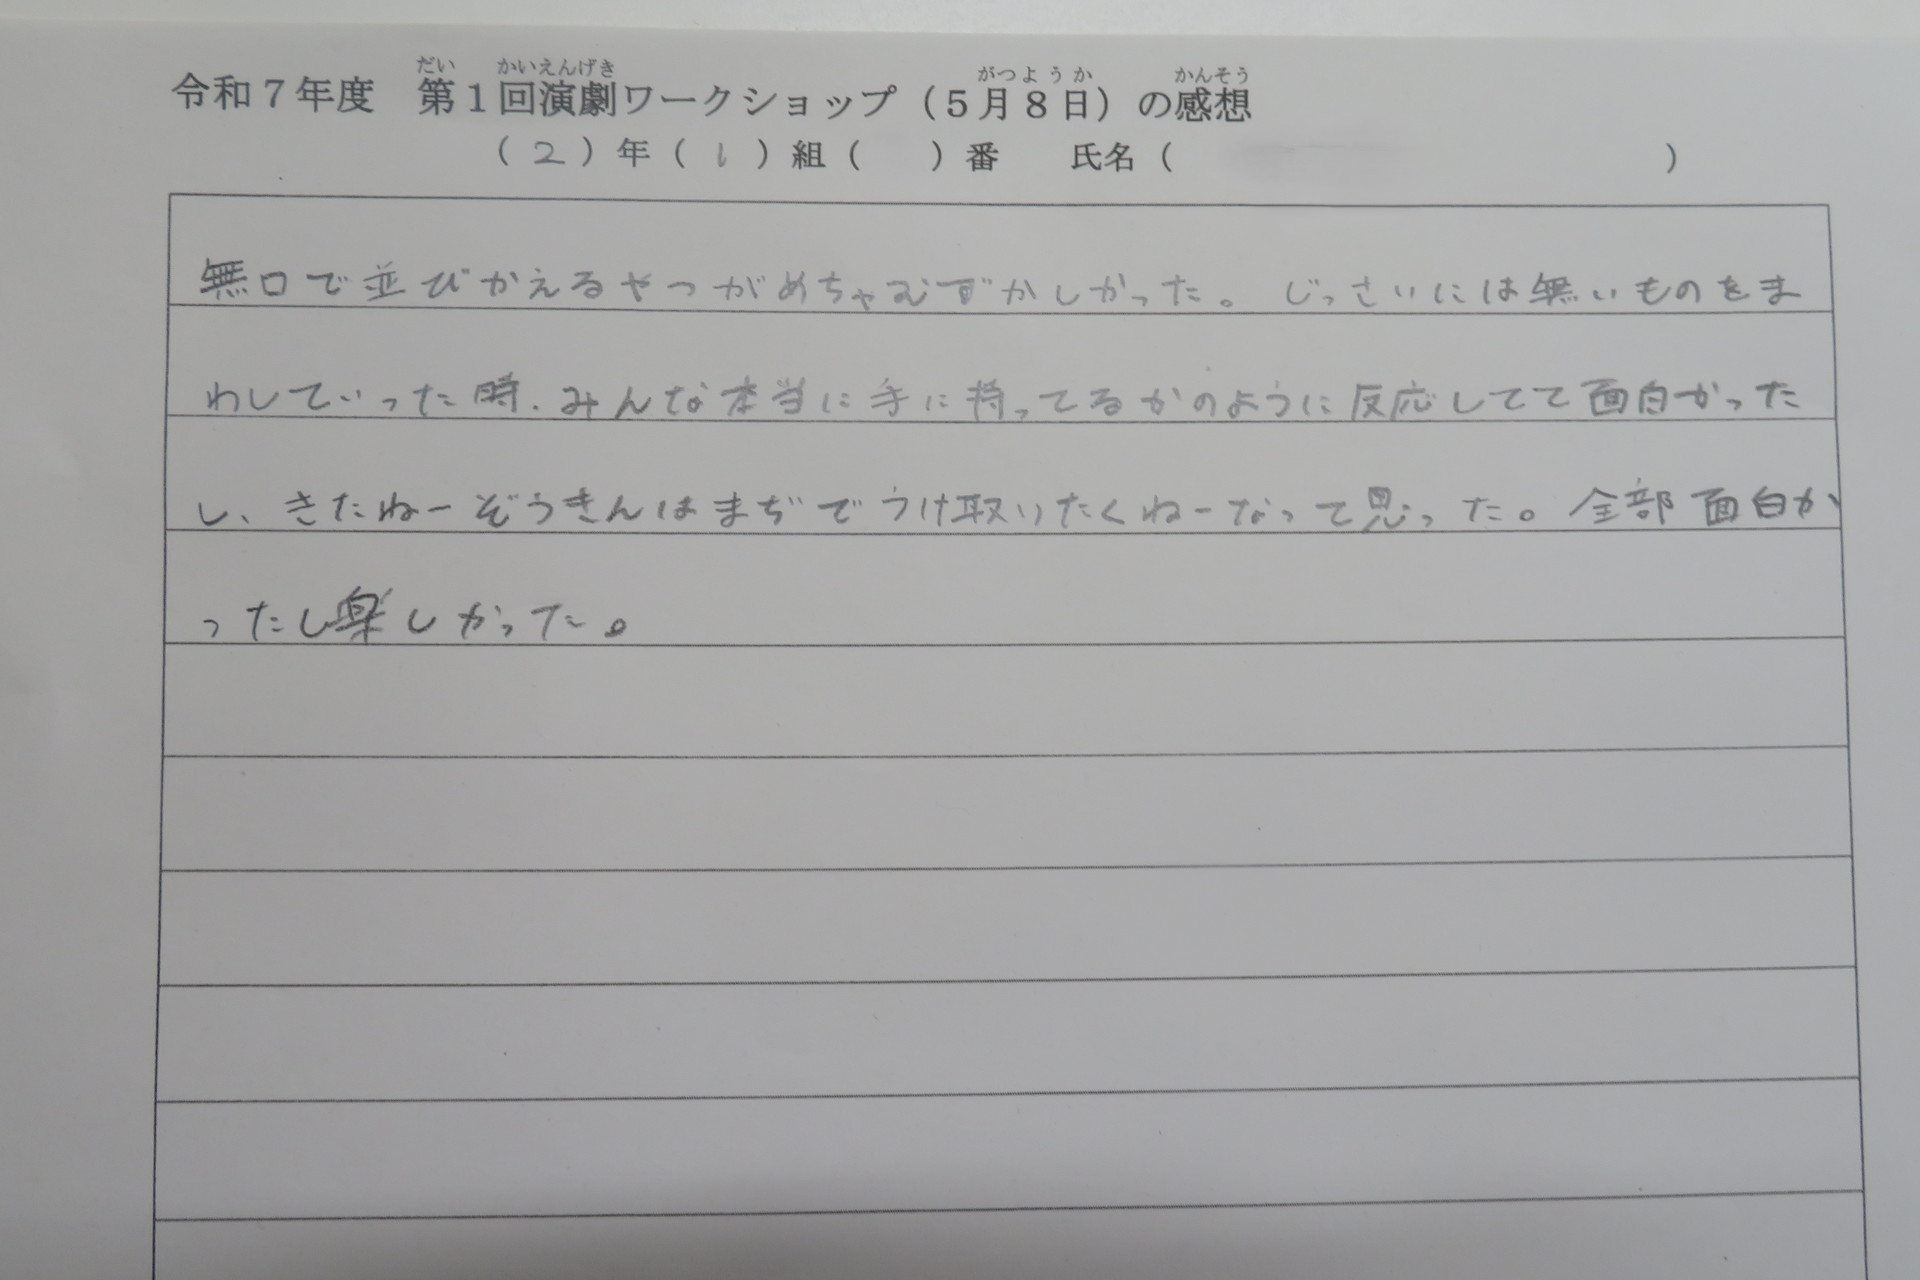 令和７年度　第１回演劇ワークショップ（５月８日）の感想
（２）年（１）組（　）番　氏名（　）
無口で並びかえるやつがめちゃむずかしかった。じっさいには無いものをま
わしていった時、みんな本当に手に持ってるかのように反応してて面白かった
し、きたねーぞうきんはまぢでうけ取りたくねーなって思った。全部面白か
ったし楽しかった。